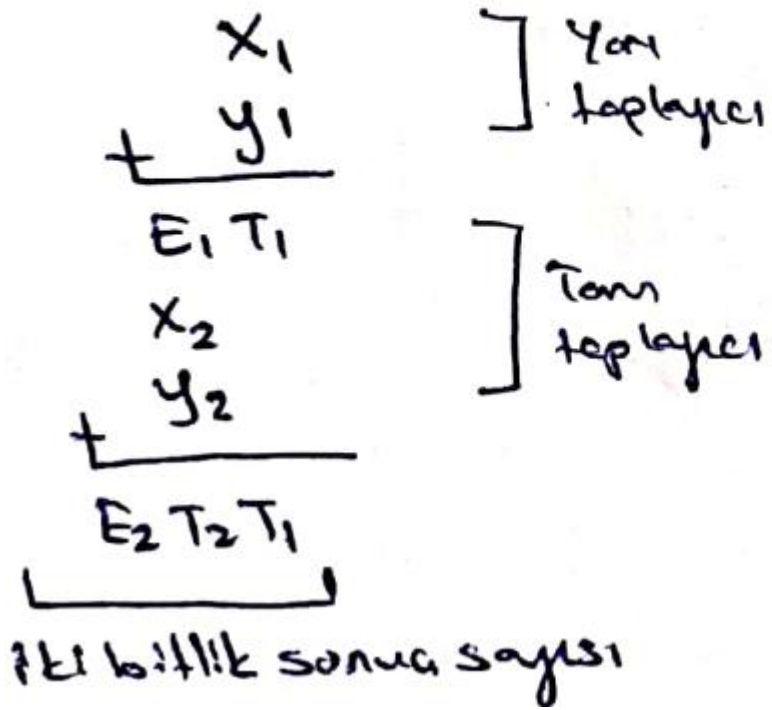 X₁
Yarı
toplayıcı
+ y₁
E₁ T₁
X₂
Tam
toplayıcı
+ y₂
E₂ T₂ T₁
iki bitlik sonuç sayısı